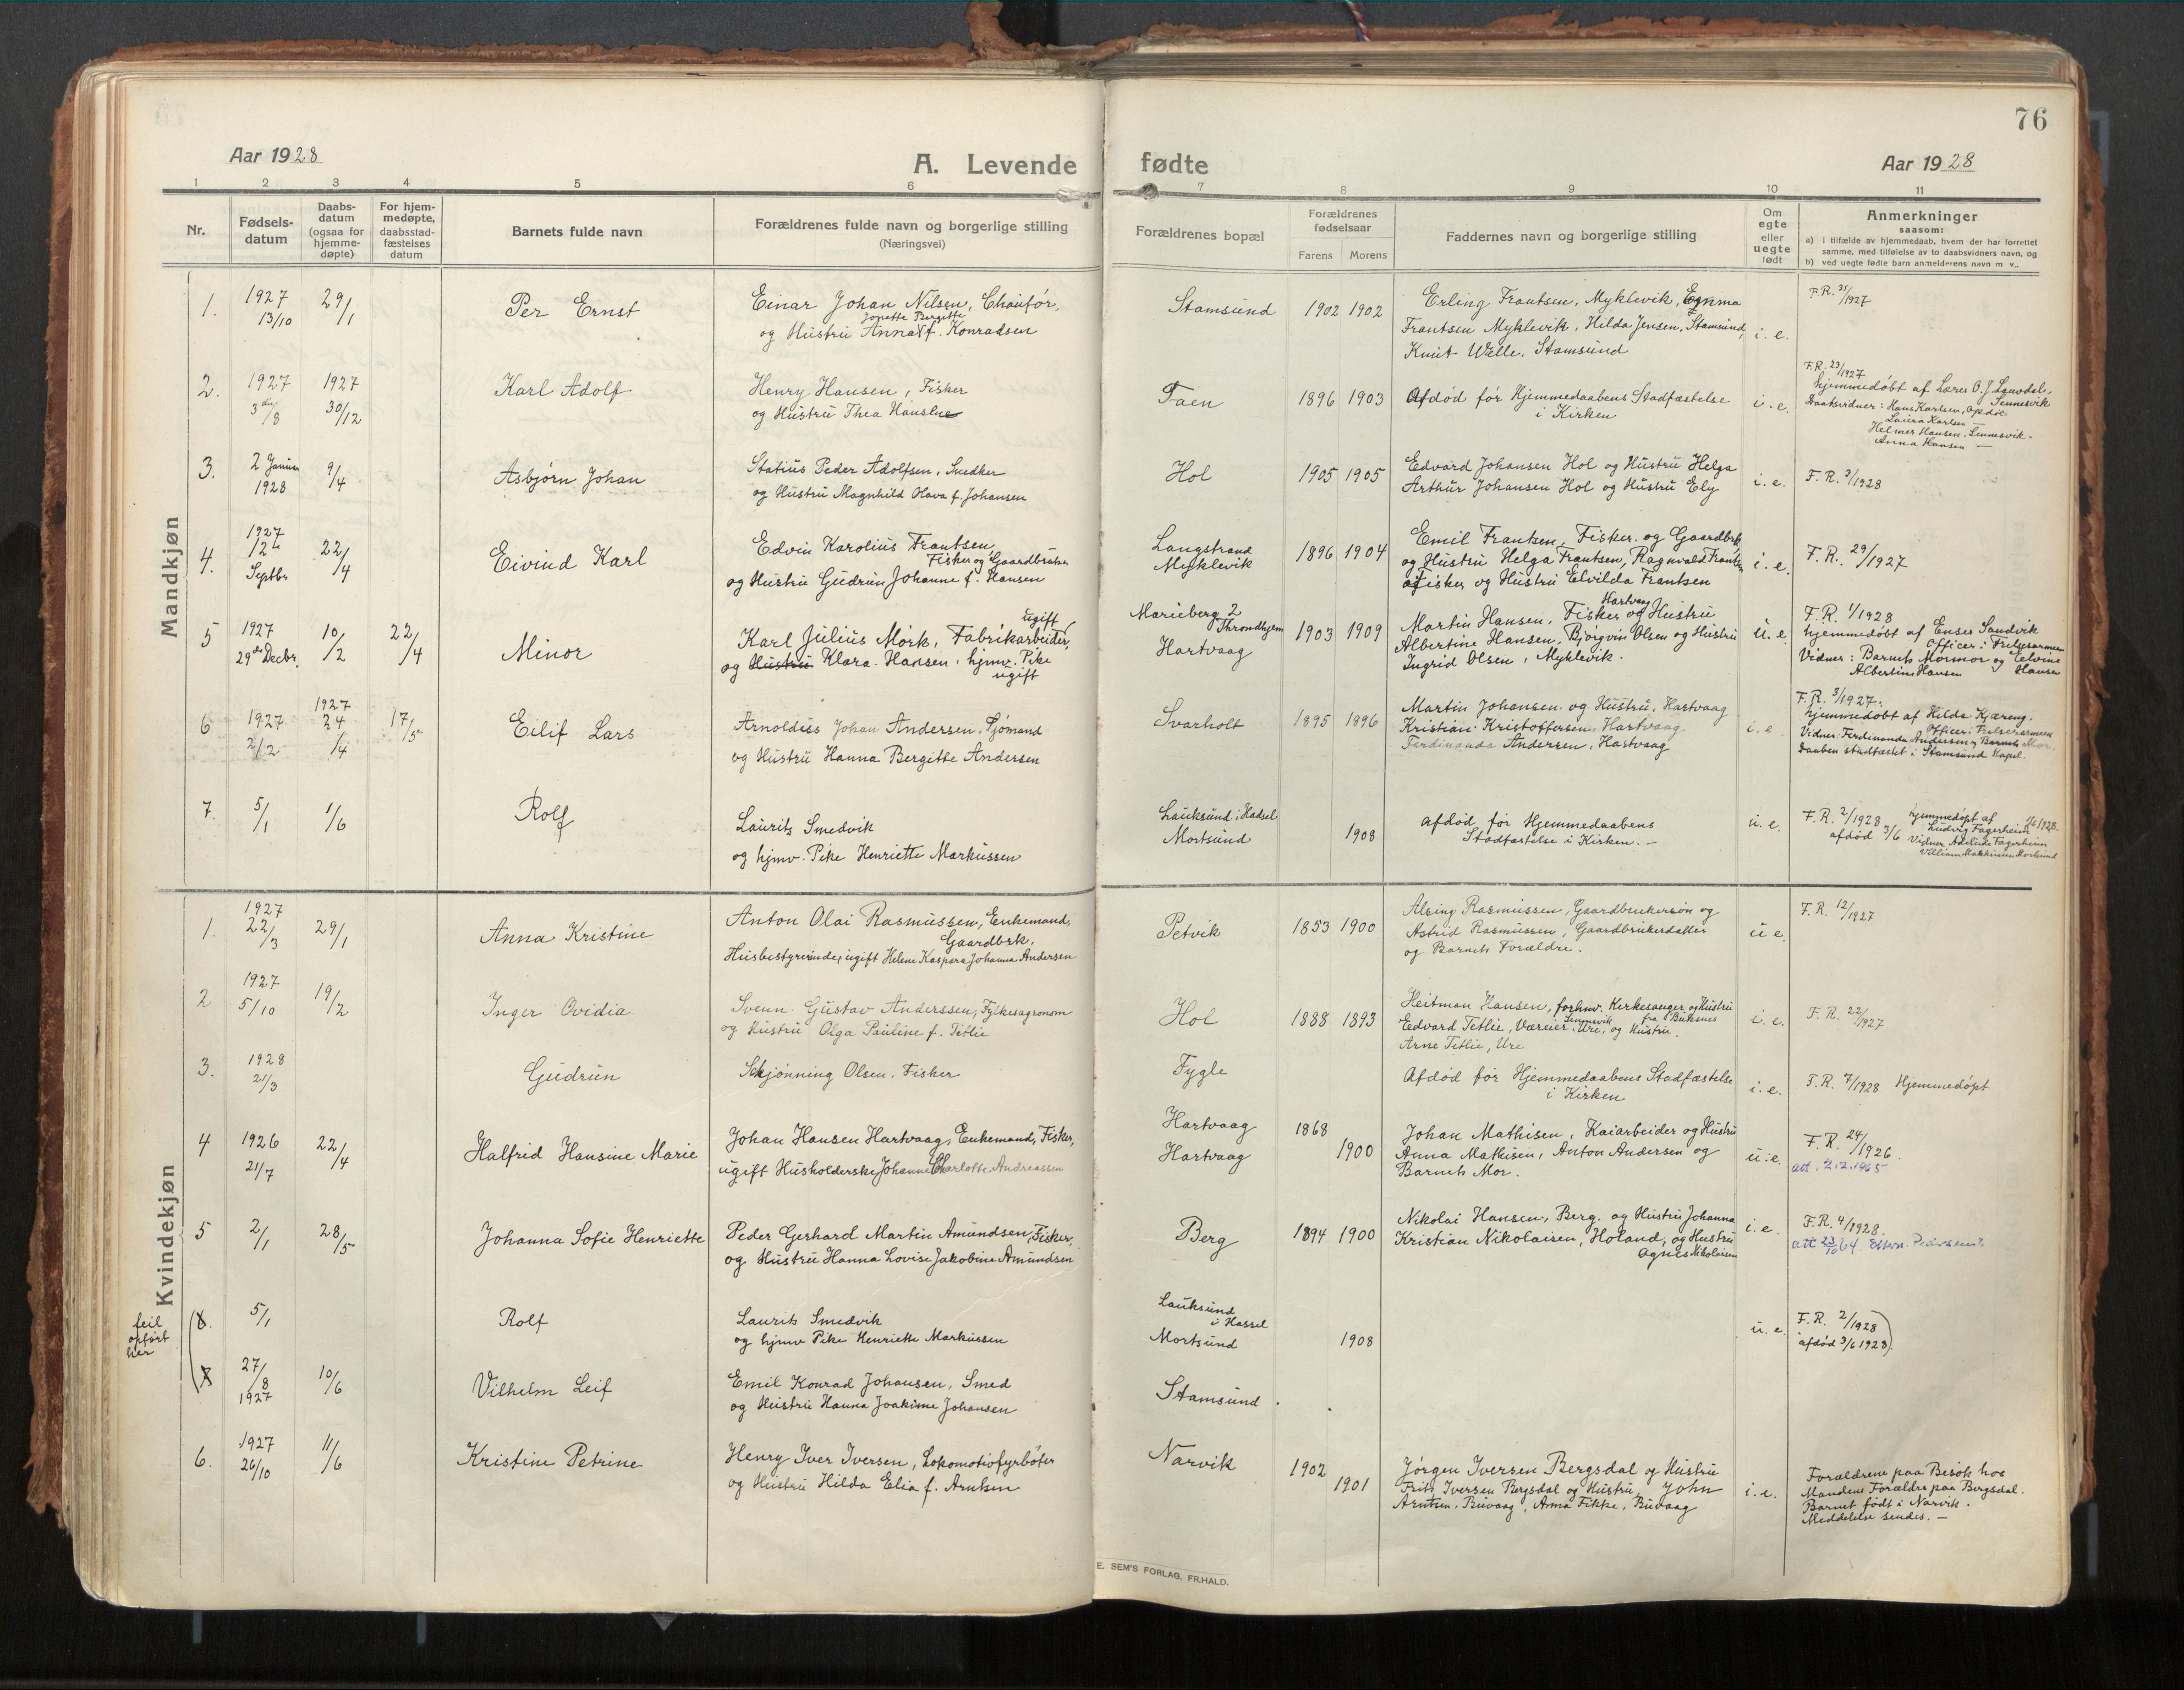 76
Aar 1928
A. Levende fødte
Aar 1928
1 2 3 4 5 6 7 8 9 10 11
Nr.
Fødsels-
datum
Daabs-
datum
(ogsaa for
hjemme-
døpte)
For hjem-
medøpte,
daabsstad-
fæstelses
datum
Barnets fulde navn
Forældrenes fulde navn og borgerlige stilling
(Næringsvei)
Forældrenes bopæl
Forældrenes
fødselsaar
Farens Morens
Faddernes navn og borgerlige stilling
Om
egte
eller
uegte
født
Anmerkninger
saasom:
a) i tilfælde av hjemmedaab, hvem der har forrettet
samme, med tilføielse av to daabsvidners navn, og
b) ved uegte fødte barn anmelderens navn m. v..
Mandkjøn
1.
1927
13/10
29/1
Per Ernst
Einar Johan Nilsen, Chauför,
Jonette Bergitte
og Hustru Anna f. Konradsen
Stamsund
1902 1902
Erling Frantsen, Myklevik, Emma
Frantsen Myklevik, Hilda Jensen, Stamsund,
Knut Welle, Stamsund
i. e.
F.R. 31/1927
2.
1927
3 aug/8
1927
30/12
Karl Adolf
Henry Hansen, Fisker
og Hustru Thea Hansine
Faen
1896 1903
Afdød før Hjemmedaabens Stadfæstelse
i Kirken
i. e.
F.R. 23/1927
hjemmedøbt af Lærer O. J.
Sennesvik
Daabsvidner: Hans Karlsen, Opdøl
Laura Karlsen —
Helmer Hansen, Sennesvik.
Anna Hansen —
3.
2 Januar
1928
9/4
Asbjørn Johan
Statius Peder Adolfsen, Snedker
og Hustru Magnhild Olava f. Johansen
Hol
1905 1905
Edvard Johansen Hol og Hustru Helga
Arthur Johansen Hol og Hustru Ely
i. e.
F. R. 3/1928
4.
1927
12te
Septbr
22/4
Eivind Karl
Edvin Karolius Frantsen,
Fisker og Gaardbruker
og Hustru Gudrun Johanne f. Hansen
Langstrand
Myklevik
1896 1904
Emil Frantsen, Fisker. og Gaardbrk
og Hustru Helga Frantsen, Ragnvald Frantsen
Fisker og Hustru Elvilda Frantsen
i. e.
F. R. 29/1927
5
1927
29de Decbr.
10/2
22/4
Minor
ugift
Karl Julius Mörk, Fabrikarbeider,
og Hustru Klara Hansen, hjmv. Pike
ugift
Marieberg 2
Throndhjem
Hartvaag
1903 1909
Hartvaag
Martin Hansen, Fisker og Hustru
Albertine Hansen, Bjorgvin Olsen og Hustru
Ingrid Olsen, Myklevik.
u. e
F. R. 1/1928
hjemmedøbt af Enser Sandvik
Officer i Frelsesarmeen
Vidner: Barnets Mormor og Elvine
Albertine Hansen Hansen
6
1927
2/12
1927
24/4
17/5
Eilif Lars
Arnoldus Johan Andersen. Sjømand
og Hustru Hanna Bergitte Andersen
Svarholt
1895 1896
Martin Johansen og Hustru, Hartvaag
Kristian Kristoffersen, Hartvaag
Ferdinanda Andersen, Hartvaag
i. e
F. R. 3/1927.
hjemmedøbt af Hilda Kjæreng.
Officer i Frelsesarmeen
Vidner: Ferdinanda Andersen, Barnets Mor.
Daaben stadfæstet i Stamsund Kapel.
7.
5/1
1/6
Rolf
Laurits Smedvik
og hjmv. Pike Henriette Markussen
Lauksund i Hadsel
Mortsund
1908
Afdød før Hjemmedaabens
Stadfæstelse i Kirken. —
u. e.
F. R. 2/1928
afdød 3/6
hjemmedøpt af 1/6 1928.
Ludvig Fagerheim
Vidner Adelide Fagerheim
William Markussen Mortsund
Kvindekjøn
1.
1927
22/3
29/1
Anna Kristine
Anton Olai Rasmussen, Enkemand,
Gaardbrk.
Husbestyrerinde, ugift Helene Kaspara Johanna Andersen
Petvik
1853 1900
Alsing Rasmussen, Gaardbrukersøn og
Astrid Rasmussen, Gaardbrukerdatter
og Barnets Forældre.
u e.
F. R. 12/1927
2
1927
5/10
19/2
Inger Ovidia
Svenn Gustav Anderssen, Fylkesagronom
og Hustru Olga Pauline f. Tetlie
Hol
1888 1893
Heitman Hansen, forhnv. Kirkesanger og Hustru
Sennesvik fra Buksnes
Edvard Tetlie, Væreier, Ure, og Hustru.
Arne Tetlie, Ure
i. e.
F. R. 22/1927
3.
1928
21/3
Gudrun
Schjønning Olsen. Fisker
Fygle
Afdød før Hjemmedaabens Stadfæstelse
i Kirken
i. e.
F. R. 7/1928 Hjemmedøpt
4
1926
21/7
22/4
Halfrid Hansine Marie
Johan Hansen Hartvaag, Enkemand, Fisker,
ugift Husholderske Johanne Charlotte Andreassen
Hartvaag
Hartvaag
1868
1900
Johan Mathisen, Kaiarbeider og Hustru
Anna Mathisen, Anton Andersen og
Barnets Mor.
u. e.
F. R. 24/1926.
att. 2.2.1965
5
2/1
28/5
Johanna Sofie Henriette
Peder Gerhard Martin Amundsen, Fisker,
og Hustru Hanna Lovise Jakobine Amundsen
Berg
1894 1900
Nikolai Hansen, Berg. og Hustru Johanna
Kristian Nikolaisen, Holand, og Hustru
Agnes Nikolaisen
i. e.
F. R. 4/1928.
att 23/10 64. Pedersen?
feil
opført
her
6.
5/1
Rolf
Laurits Smedvik
og hjmv Pike Henriette Markussen
Lauksund
i Hassel
Mortsund
1908
u. e.
F. R. 2/1928
afdød 3/6 1928)
7
27/8
1927
10/6
Vilhelm Leif
Emil Konrad Johansen, Smed
og Hustru Hanna Joakime Johansen
Stamsund.
6.
1927
26/10
11/6
Kristine Petrine
Henry Iver Iversen, Lokomotivfyrbøter
og Hustru Hilda Elia f. Arntsen
Narvik
1902
1901
Jørgen Iversen Bergsdal og Hustru
Frits Iversen Bergsdal og Hustru, John
Arntsen, Buvaag, Anna Fikke, Buvaag
i. e.
Forældrene paa Besøk hos
Mandens Forældre paa Bergsdal.
Barnet født i Narvik.
Meddelelse sendes. —
E. SEM'S FORLAG, FR.HALD.